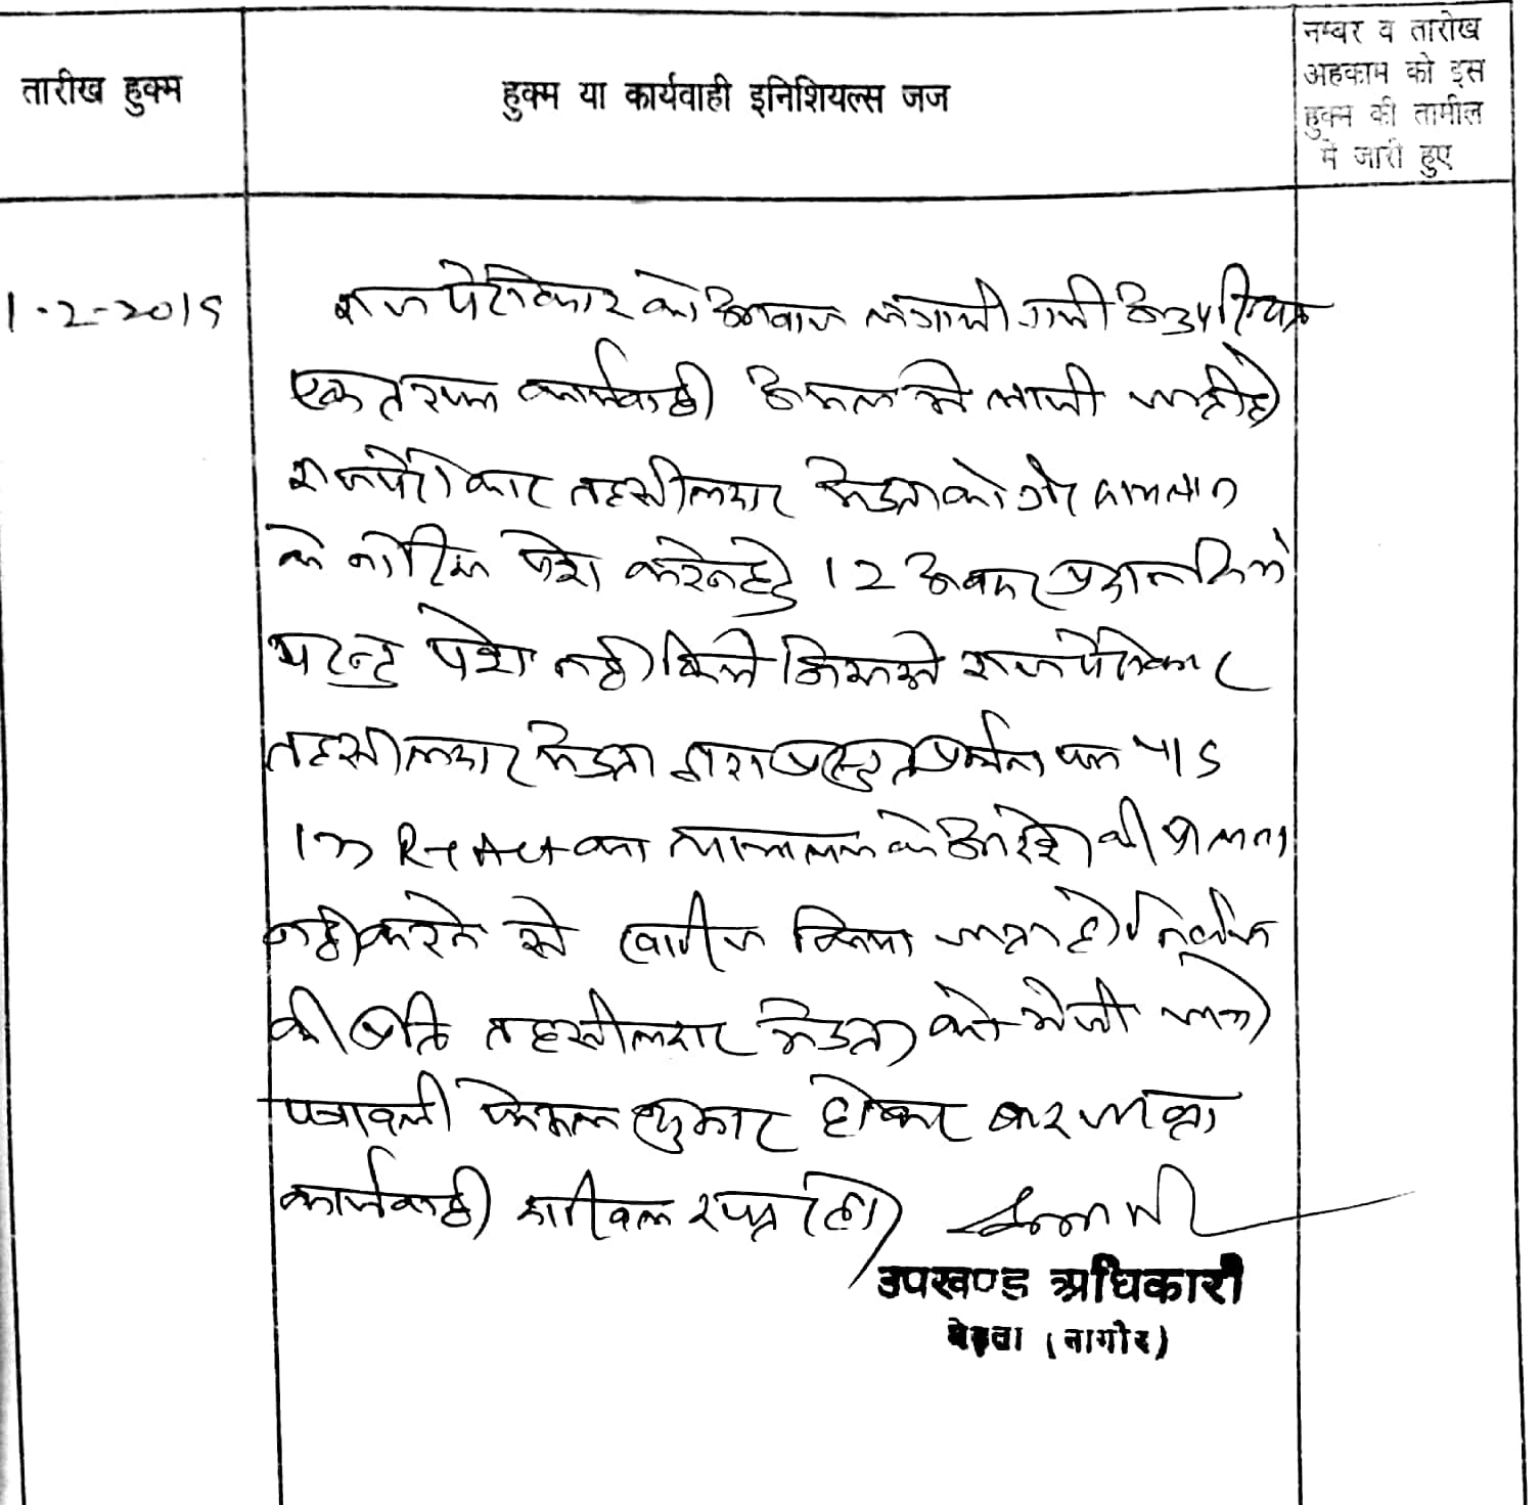 तारीख हुक्म
हुक्म या कार्यवाही इनिशियल्स जज
नम्बर व तारीख
अहकाम को इस
हुक्म की तामील
में जारी हुए
1-2-2019
राज पैरोकार को आवाज लगायी गयी अनुपस्थित
एक तरफा कार्यवाही अमल मे लायी जाती है
राजपैरोकार तहसीलदार मेडता को गैर सायलान
के नोटिस पेश करने हेतु 12 अवसर प्रदान किये
परन्तु पेश नही किये जिससे राज पैरोकार
तहसीलदार मेडता द्वारा प्रस्तुत प्रार्थना पत्र
R T Act का न्यायालय के आदेश की पालना
नही करने से खारीज किया जाता है। निर्णय
की प्रति तहसीलदार मेडता को भेजी जावे
पत्रावली फैसल शुमार होकर बाद जाब्ता
कार्यवाही दाखिल दफ्तर हो।
उपखण्ड अधिकारी
मेड़ता (नागौर)